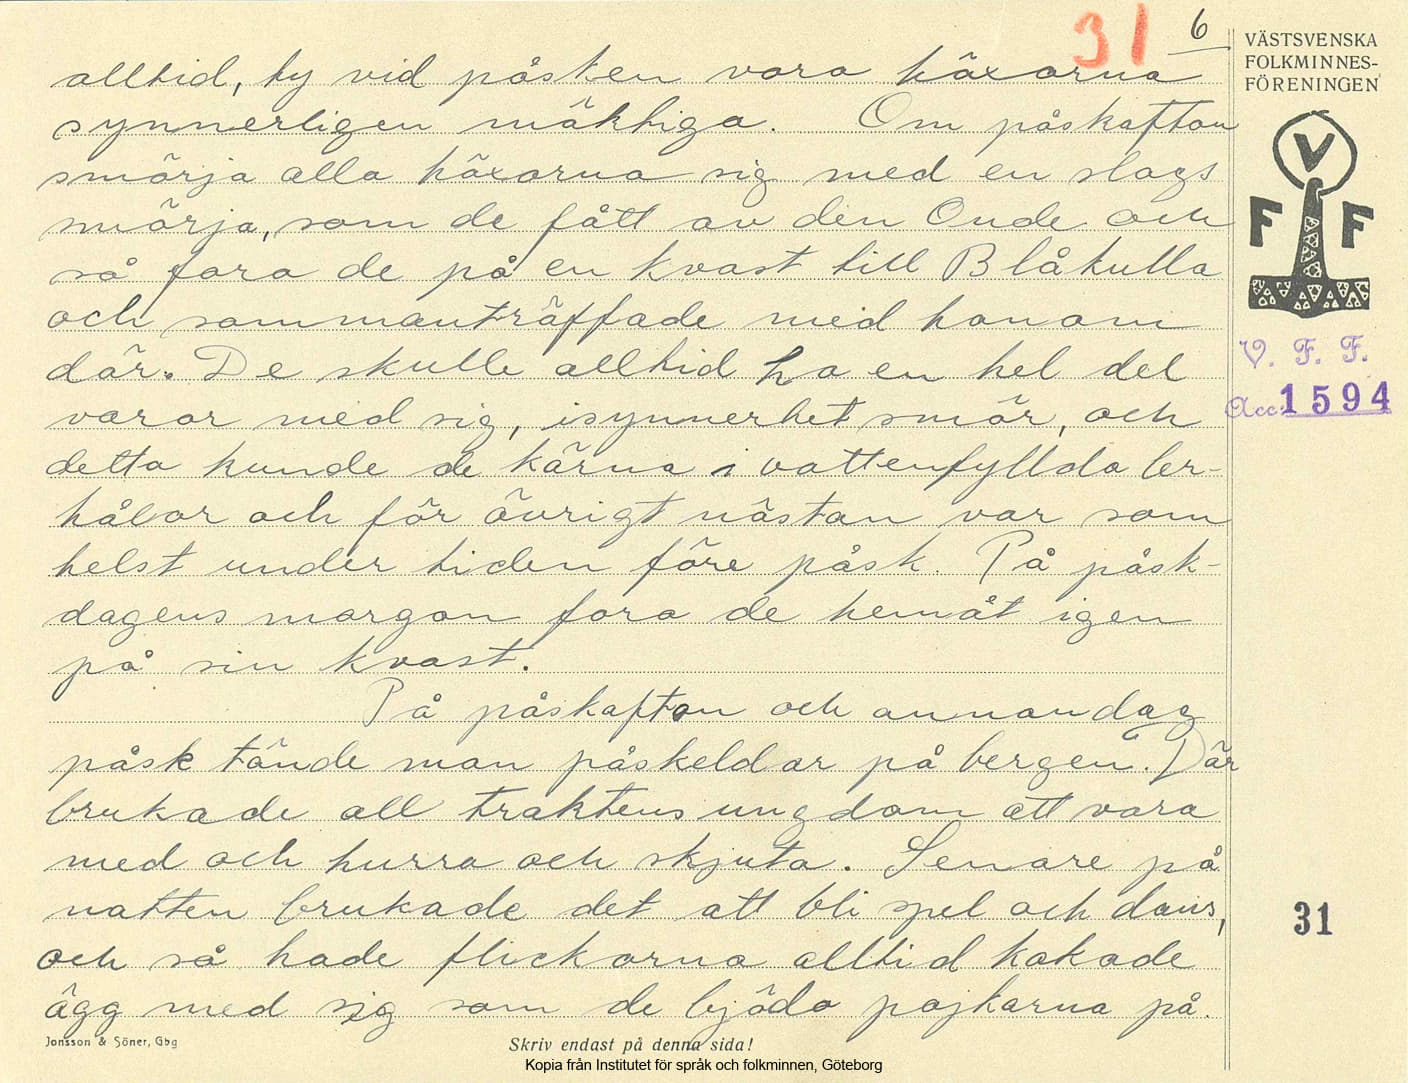 31 6
alltid, ty vid påsken voro häxorna
synnerligen mäktiga. Om påskafton
smörja alla häxorna sig med en slags
smörja, som de fått av den Onde och
så foro de på en kvast till Blåkulla
och sammanträffade med honom
där. De skulle alltid ha en hel del
varor med sig, isynnerhet smör, och
detta kunde de kärna i vattenfyllda ler-
hålor och för övrigt nästan var som
helst under tiden före påsk. På påsk-
dagens morgon foro de hemåt igen
på sin kvast.
På påskafton och annandag
påsk tände man påskeldar på bergen. Där
brukade all traktens ungdom att vara
med och hurra och skjuta. Senare på
natten brukade det att bli spel och dans,
och så hade flickorna alltid kokade
ägg med sig som de bjödo pojkarna på.
Jonsson & Söner, Gbg
Skriv endast på denna sida!
Kopia från Institutet för språk och folkminnen, Göteborg
VÄSTSVENSKA
FOLKMINNES-
FÖRENINGEN
V
F F
V. F. F.
Acc. 1594
31